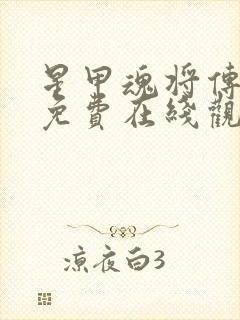 星甲魂将傳
免費在綫觀
涼夜白3